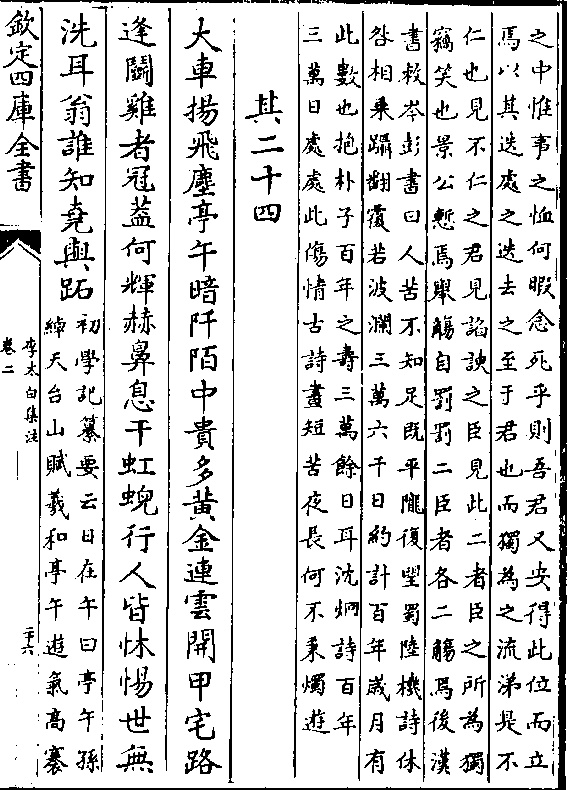 之中惟事之恤何暇念死乎則吾君又安得此位而立
焉以其迭處之迭去之至于君也而獨為之流涕是不
仁也見不仁之君見諂諛之臣見此二者臣之所為獨
竊笑也景公慙焉舉觴自罰罰二臣者各二觴焉後漢
書敕岑彭書曰人苦不知足既平隴復望蜀陸機詩休
咎相乗躡翻覆若波瀾三萬六千日約計百年嵗月有
此數也抱朴子百年之壽三萬餘日耳沈炯詩百年
三萬日處處此傷情古詩晝短苦夜長何不秉燭遊
其二十四
大車揚飛塵亭午暗阡陌中貴多黃金連雲開甲宅路
逢鬬雞者冠蓋何輝赫鼻息干虹蜺行人皆怵惕世無
洗耳翁誰知堯與跖
初學記纂要云日在午曰亭午孫
綽天台山賦羲和亭午遊氣高褰
欽定四庫全書
李太白集注
卷二
二十六